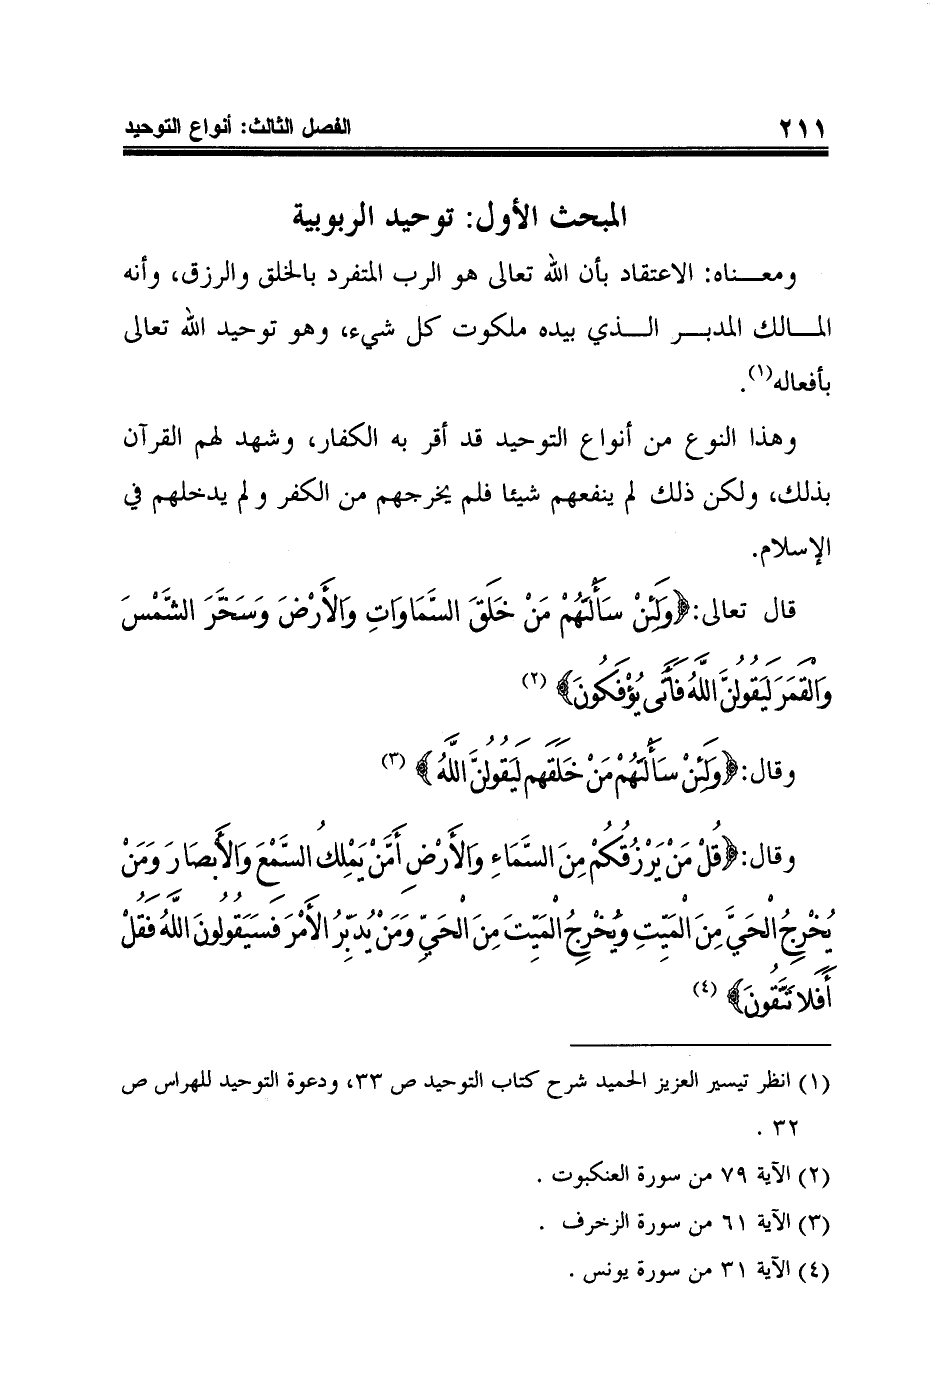 ٢١١ الفصل الثالث: أنواع التوحيد
المبحث الأول: توحيد الربوبية
ومعـــناه: الاعتقاد بأن الله تعالى هو الرب المتفرد بالخلق والرزق، وأنه
المـــالك المدبـــر الـــذي بيده ملكوت كل شيء، وهو توحيد الله تعالى
بأفعاله(١).
وهذا النوع من أنواع التوحيد قد أقر به الكفار، وشهد لهم القرآن
بذلك، ولكن ذلك لم ينفعهم شيئا فلم يخرجهم من الكفر ولم يدخلهم في
الإسلام.
قال تعالى:﴿وَلَئِنْ سَأَلْتَهُمْ مَنْ خَلَقَ السَّمَاوَاتِ وَالأَرْضَ وَسَخَّرَ الشَّمْسَ
وَالْقَمَرَ لَيَقُولُنَّ اللَّهُ فَأَنَّى يُؤْفَكُونَ﴾ (٢)
وقال:﴿وَلَئِنْ سَأَلْتَهُمْ مَنْ خَلَقَهُم لَيَقُولُنَّ اللَّهُ﴾ (٣)
وقال:﴿قُلْ مَنْ يَرْزُقُكُمْ مِنَ السَّمَاءِ وَالأَرْضِ أَمَّنْ يَمْلِكُ السَّمْعَ وَالأَبصَارَ وَمَنْ
يُخْرِجُ الْحَيَّ مِنَ الْمَيِّتِ وَيُخْرِجُ الْمَيِّتَ مِنَ الْحَيِّ وَمَنْ يُدَبِّرُ الأَمْرَ فَسَيَقُولُونَ اللَّهُ فَقُلْ
أَفَلا تَتَّقُونَ﴾ (٤)
(١) انظر تيسير العزيز الحميد شرح كتاب التوحيد ص ٣٣، ودعوة التوحيد للهراس ص
٣٢ .
(٢) الآية ٧٩ من سورة العنكبوت .
(٣) الآية ٦١ من سورة الزخرف .
(٤) الآية ٣١ من سورة يونس .